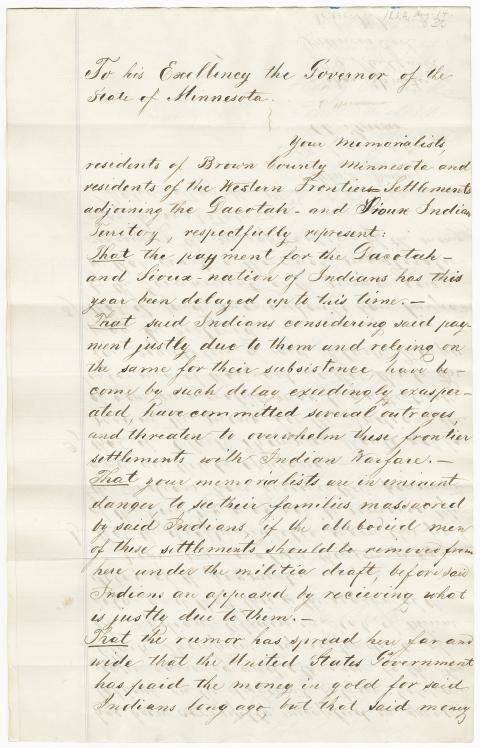 To his Excellency the Governor of the
State of Minnesota.
Your Memorialists,
residents of Brown County Minnesota and
residents of the Western Frontier Settlements
adjoining the Dacotah- and Sioux Indian
Territory, respectfully represent:
That the payment for the Dacotah-
and Sioux-nation of Indians has this
year been delayed up to this time.-
That said Indians considering said pay-
ment justly due to them and relying on
the same for their subsistence have be-
come by such delay exeedingly exasper-
ated, have committed several outrages,
and threaten to overwhelm these frontier
settlements with Indian Warfare.-
That your memorialists are in eminent
danger to see their families massacred
by said Indians, if the ablebodied men
of these settlements should be removed from
here under the militia draft, before said
Indians are appeased by recieving what
is justly due to them.-
That the rumor has spread here far and
wide that the United States Government
has paid the money in gold for said
Indians long ago but that said money